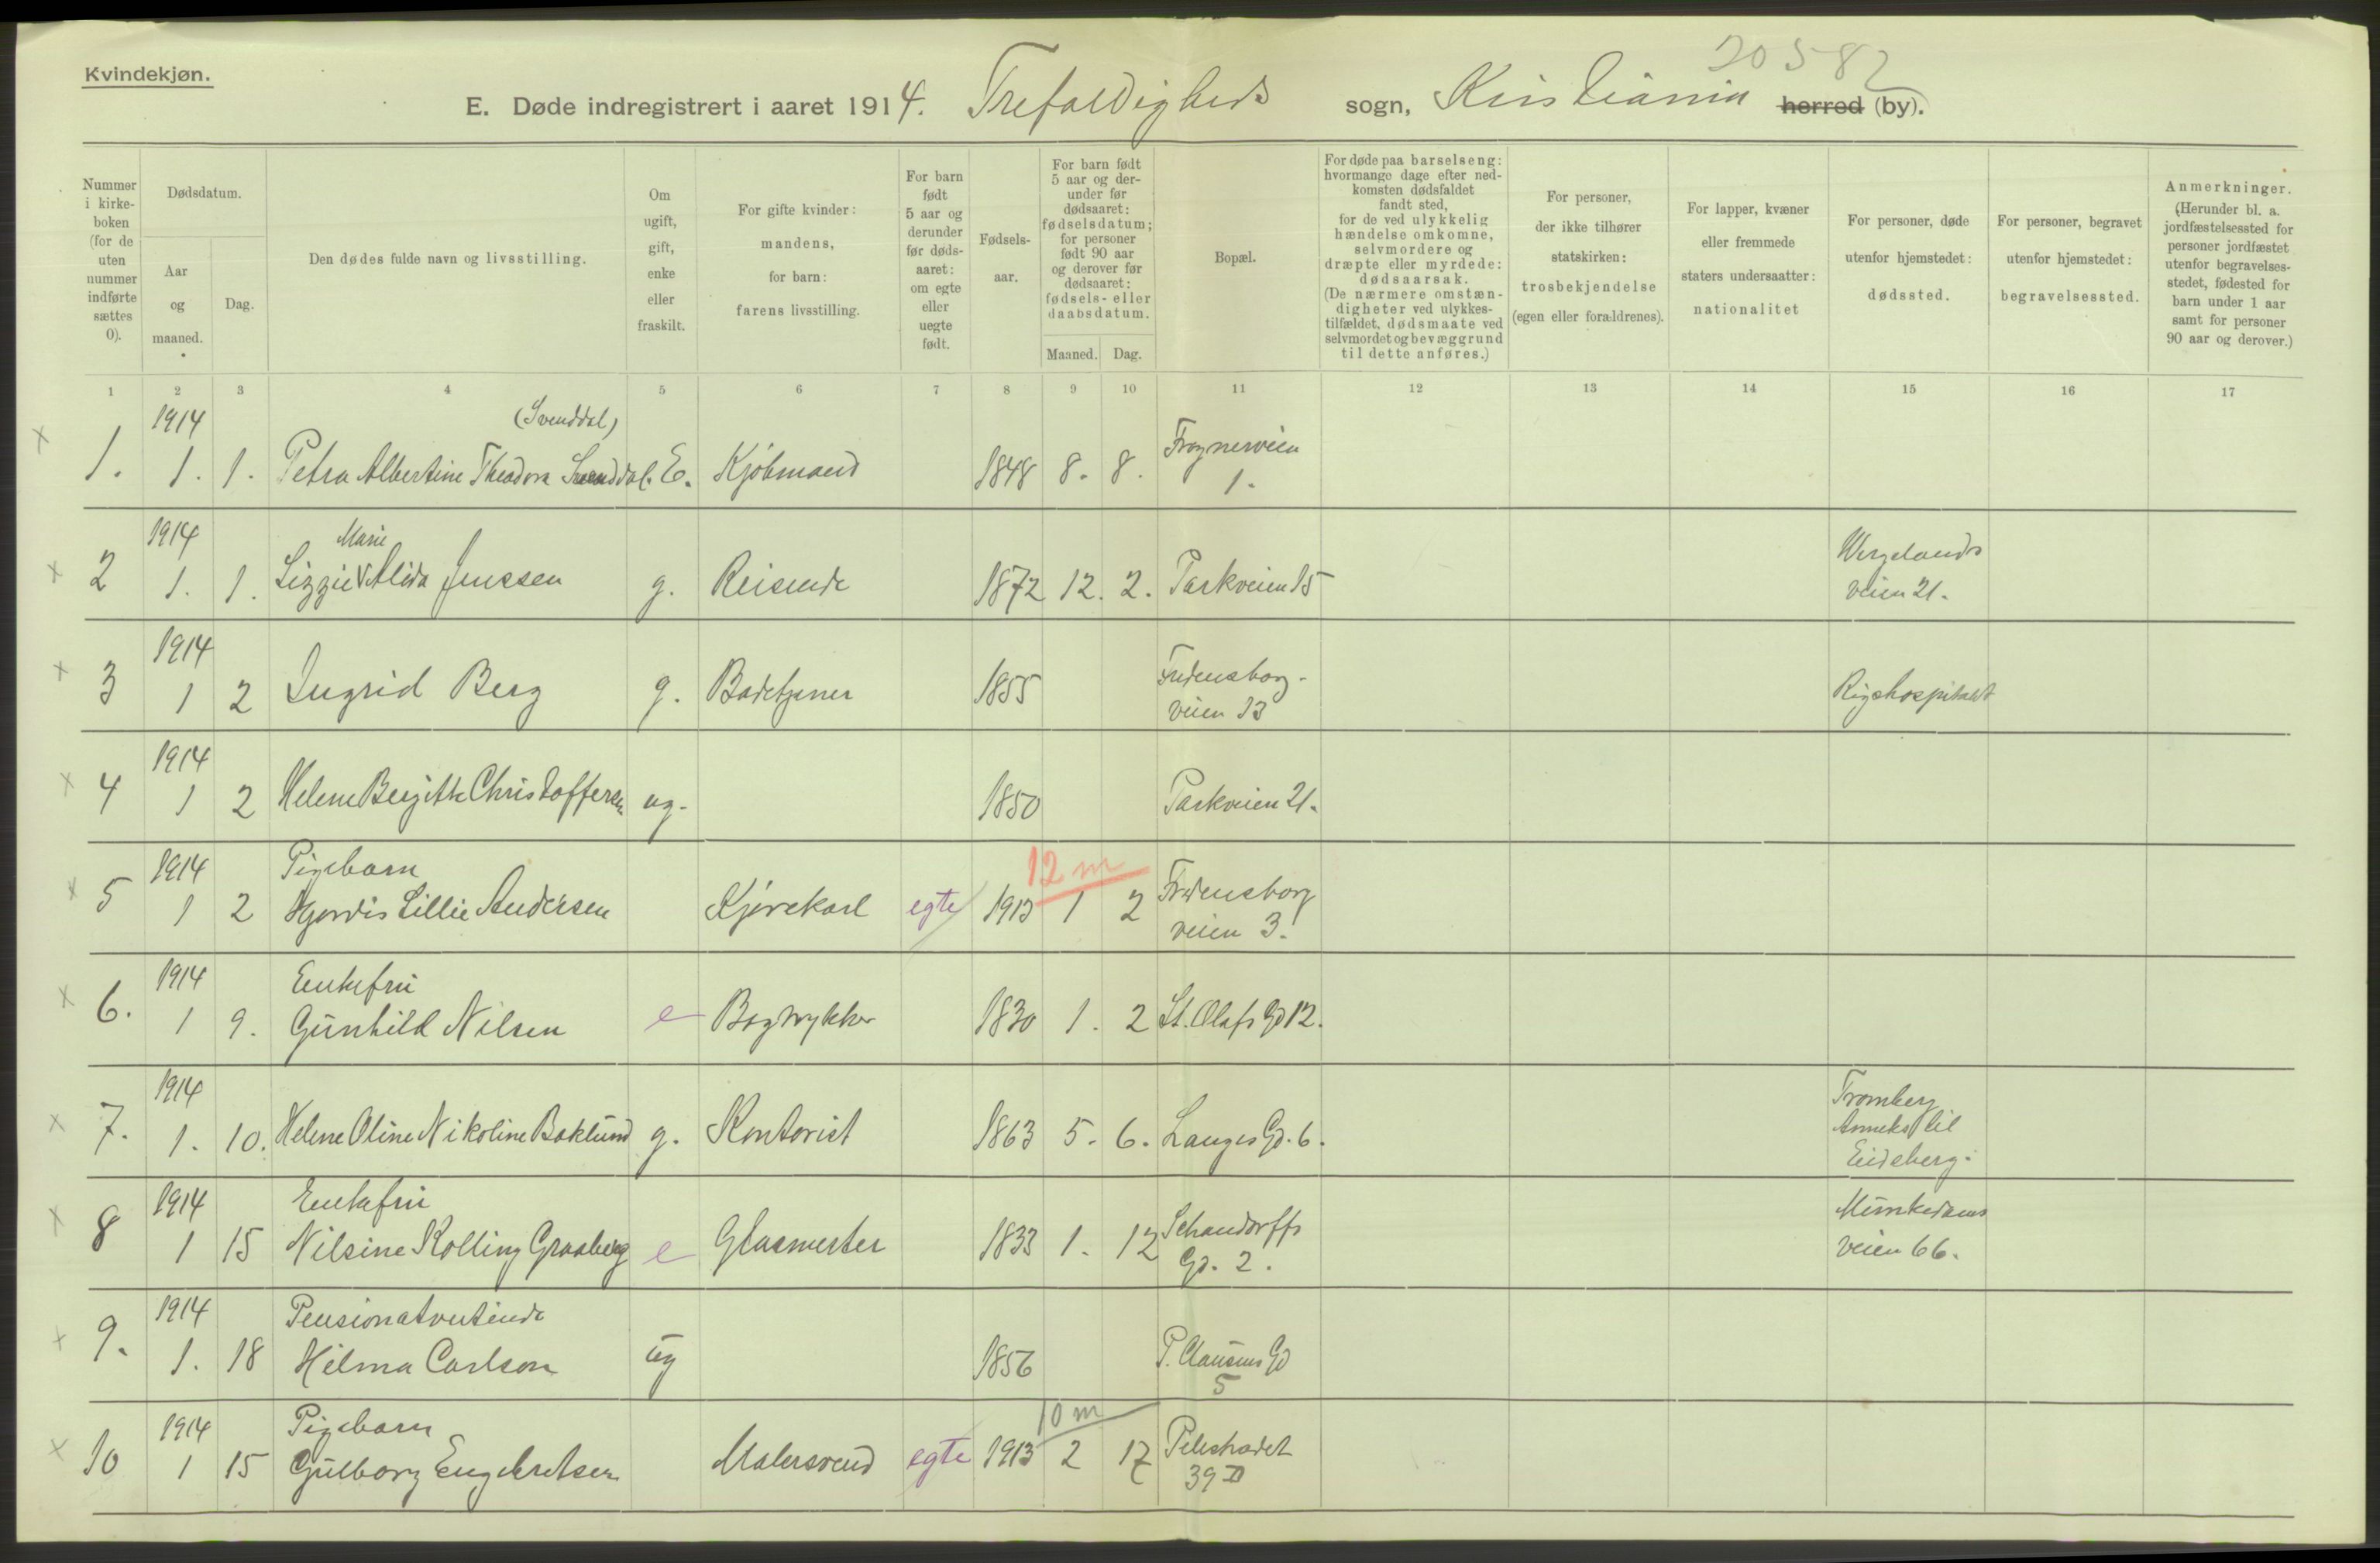 20582
Kvindekjøn.
E. Døde indregistrert i aaret 1914. Trefoldigheds sogn, Kristiania herred (by).
Nummer i kirke-boken (for de uten nummer indførte sættes 0).
Dødsdatum.
Aar og maaned.
Dag.
Den dødes fulde navn og livsstilling.
Om ugift, gift, enke eller fraskilt.
For gifte kvinder: mandens, for barn: farens livsstilling.
For barn født 5 aar og derunder før døds-aaret: om egte eller uegte født.
Fødsels-aar.
For barn født 5 aar og der-under før dødsaaret: fødselsdatum; for personer født 90 aar og derover før dødsaaret: fødsels- eller daabsdatum.
Maaned. Dag.
Bopæl.
For døde paa barselseng: hvormange dage efter ned-komsten dødsfaldet fandt sted, for de ved ulykkelig hændelse omkomne, selvmordere og dræpte eller myrdede: dødsaarsak. (De nærmere omstæn-digheter ved ulykkes-tilfældet, dødsmaate ved selvmordet og bevæggrund til dette anføres.)
For personer, der ikke tilhører statskirken: trosbekjendelse (egen eller forældrenes).
For lapper, kvæner eller fremmede staters undersaatter: nationalitet
For personer, døde utenfor hjemstedet: dødssted.
For personer, begravet utenfor hjemstedet: begravelsessted.
Anmerkninger. (Herunder bl. a. jordfæstelsessted for personer jordfæstet utenfor begravelses-stedet, fødested for barn under 1 aar samt for personer 90 aar og derover.)
1 2 3 4 5 6 7 8 9 10 11 12 13 14 15 16 17
x 1. 1914 1. 1. (Svenddal) Petra Albertine Theodora Svenddal. E. Kjøbmand 1848 8. 8. Frognerveien 1.
x 2 1914 1. 1. Marie Lizzie V Alida Jenssen g. Reisende 1872 12. 2. Parkveien 15 Wergelands veien 21.
x 3 1914 1 2 Ingrid Berg g. Badetjener 1855 Fredensborg-veien 13 Rigshospitalet
x 4 1914 1 2 Helene Bergitte Christoffersen ug. 1850 Parkveien 21.
x 5 1914 1 2 Pigebarn Hjørdis Lillie Andersen Kjørekarl egte 1913 12 m 1 2 Fredensborg veien 3.
x 6. 1914 1 9. Enkefru Gunhild Nilsen e Bogtrykker 1830 1. 2 St. Olafs Gd 12.
x 7. 1914 1. 10. Helene Oline Nikoline Baklund g. Kontorist 1863 5. 6. Langes Gd. 6. Tromberg Anneks til Eidsberg.
x 8 1914 1 15 Enkefru Nilsine Kolling Graaberg e Glasmester 1833 1. 12 Schandorffs Gd. 2. Munkedams veien 66.
x 9. 1914 1. 18 Pensionatvertinde Hilma Carlson ug 1856 P. Clausens Gd 5
x 10 1914 1 15 Pigebarn Gulborg Engebretsen Malersvend egte 1913 10 m 2 17 Pilestrædet 39 II